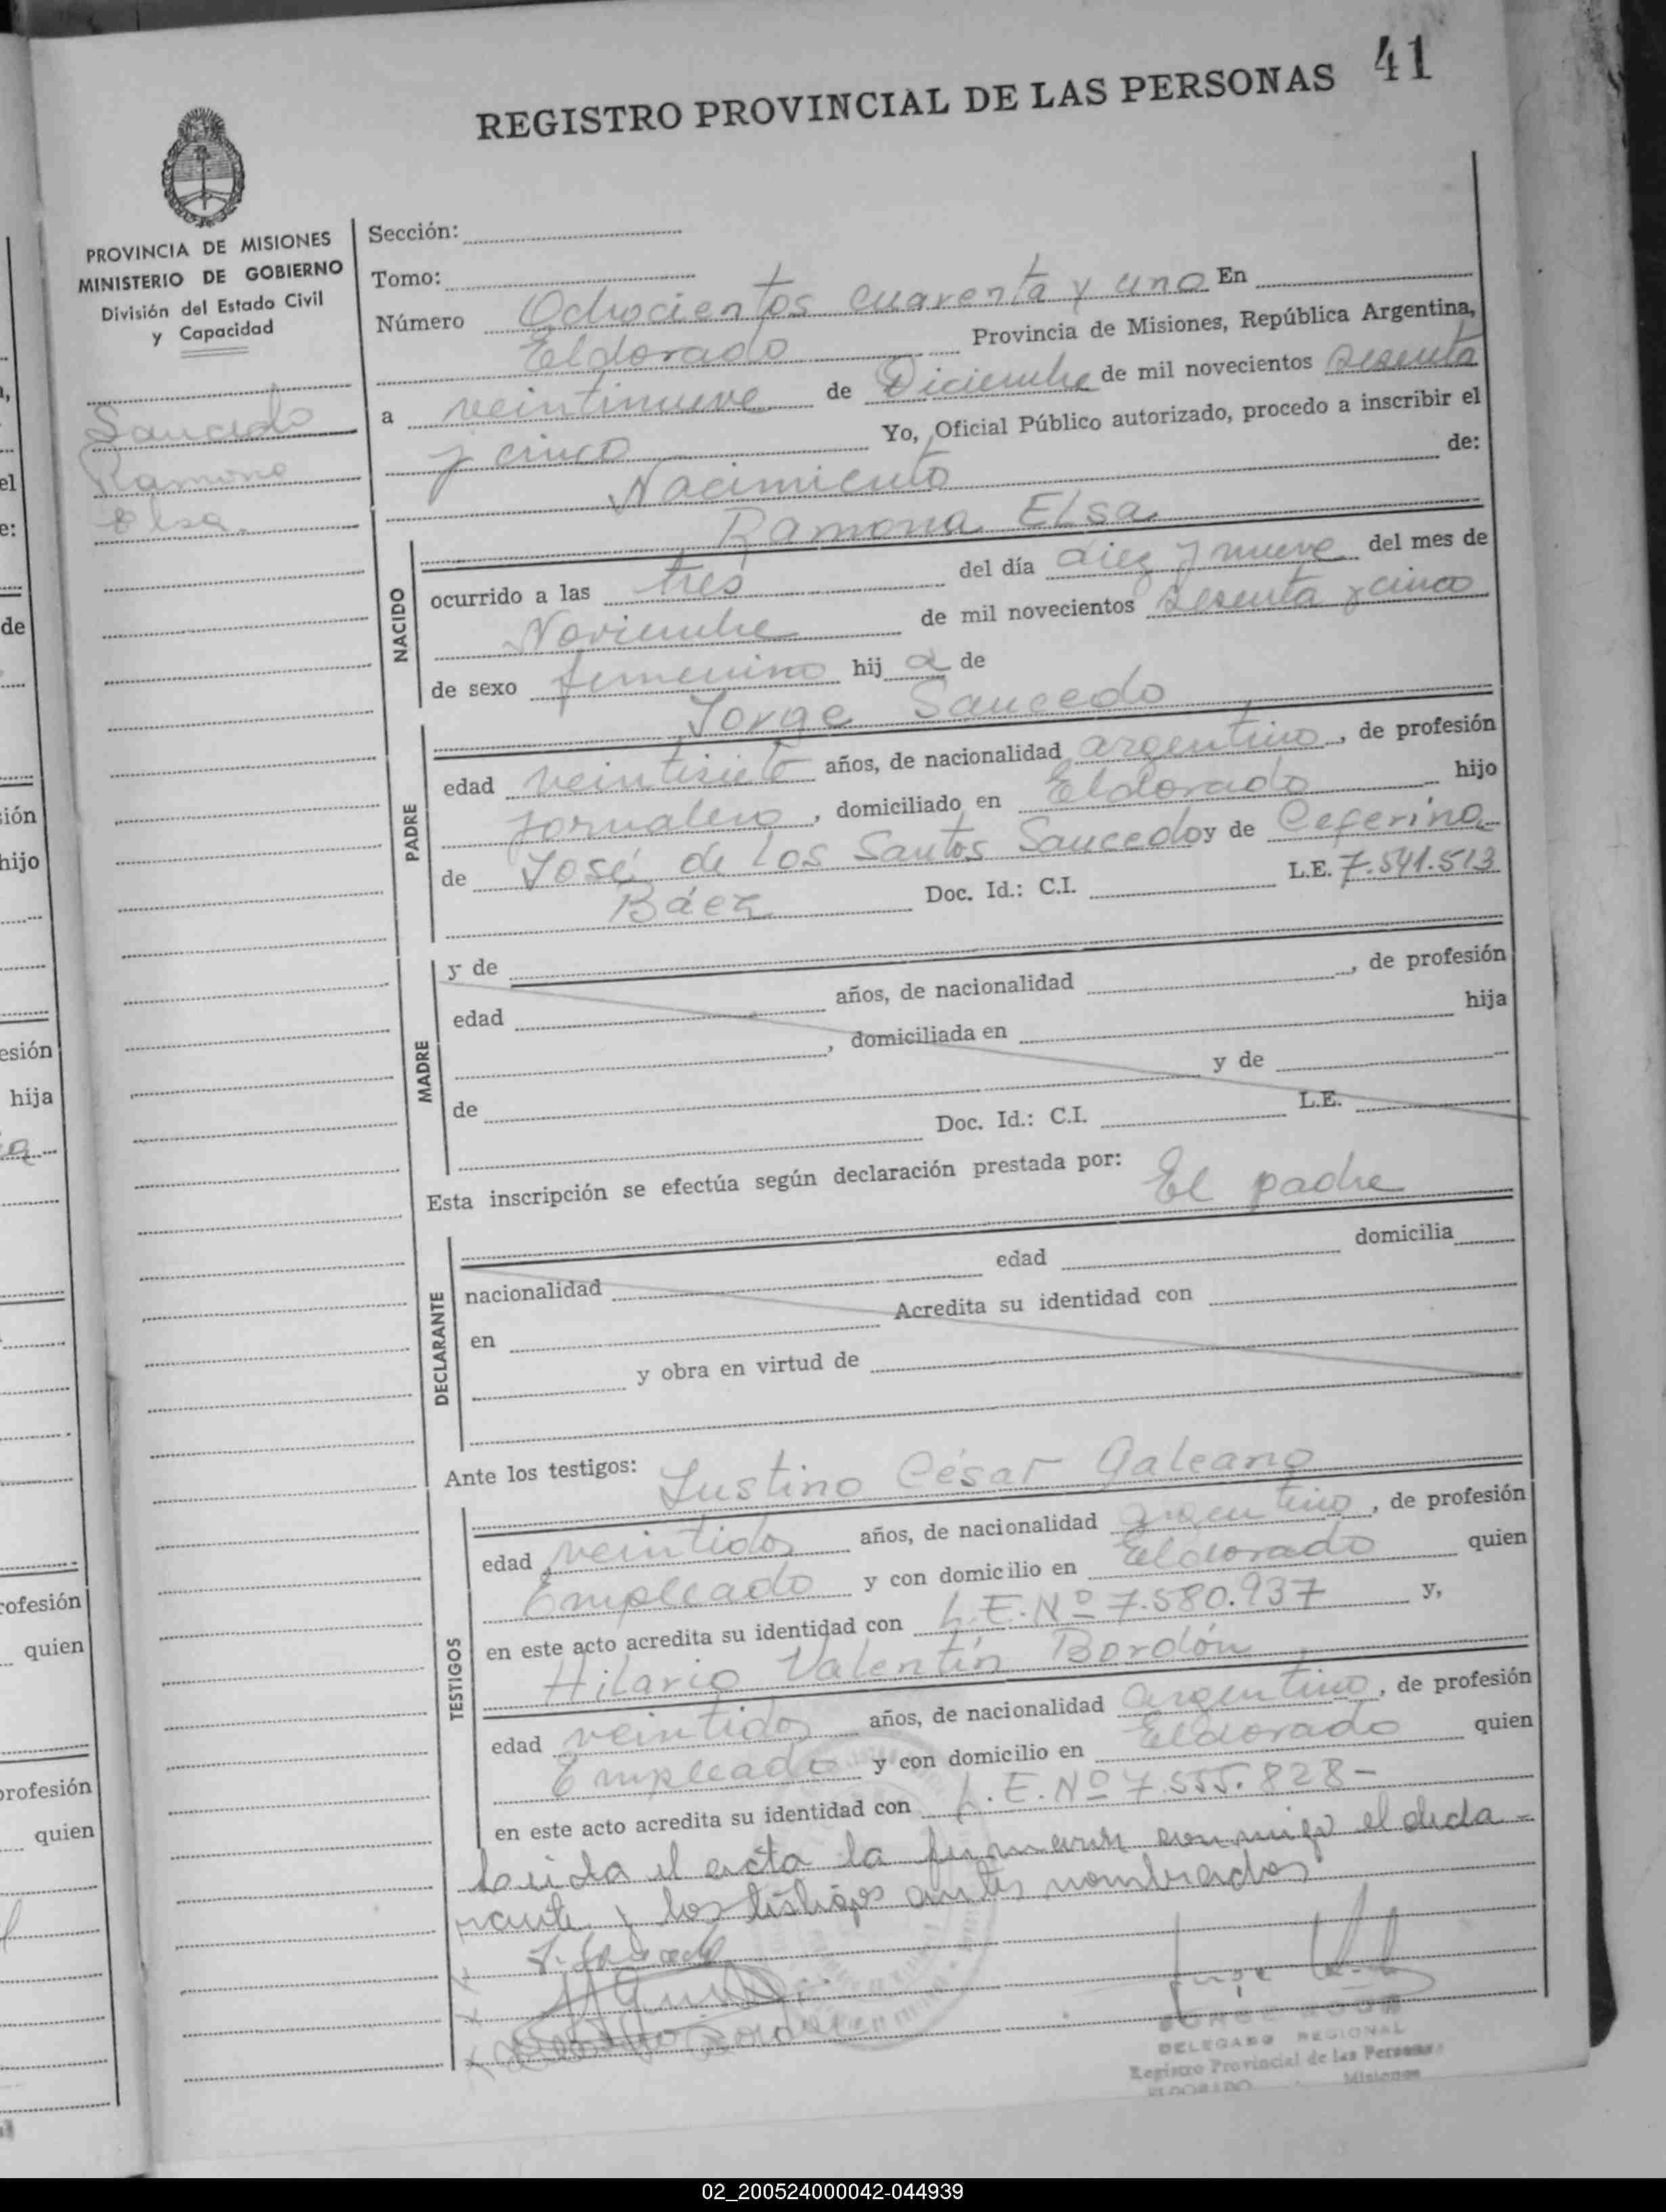 41
REGISTRO PROVINCIAL DE LAS PERSONAS
PROVINCIA DE MISIONES
MINISTERIO DE GOBIERNO
División del Estado Civil
y Capacidad
Saucedo
Ramona
Elsa.
Sección:
Tomo:
Número Ochocientos cuarenta y uno En
Eldorado Provincia de Misiones, República Argentina,
a veintinueve de Diciembre de mil novecientos sesenta
y cinco Yo, Oficial Público autorizado, procedo a inscribir el
Nacimiento de:
Ramona Elsa
NACIDO
ocurrido a las tres del día diez y nueve del mes de
Noviembre de mil novecientos sesenta y cinco
de sexo femenino hij a de
Jorge Saucedo
PADRE
edad veintisiete años, de nacionalidad argentino, de profesión
Jornalero, domiciliado en Eldorado hijo
de José de los Santos Saucedo y de Ceferina
Báez Doc. Id.: C.I. L.E. 7.541.513
MADRE
y de
edad años, de nacionalidad , de profesión
, domiciliada en hija
de y de
Doc. Id.: C.I. L.E.
Esta inscripción se efectúa según declaración prestada por: El padre
DECLARANTE
nacionalidad edad domicilia
en Acredita su identidad con
y obra en virtud de
Ante los testigos: Justino César Galeano
TESTIGOS
edad veintidos años, de nacionalidad argentino, de profesión
Empleado y con domicilio en Eldorado quien
en este acto acredita su identidad con L.E. Nº 7.580.937 y,
Hilario Valentín Bordón
edad veintidos años, de nacionalidad argentino, de profesión
Empleado y con domicilio en Eldorado quien
en este acto acredita su identidad con L.E. Nº 7.555.828-
Leida el acta la firmaron conmigo el decla-
rante y los testigos antes nombrados
J. Saucedo
DELEGADO REGIONAL
Registro Provincial de las Personas
ELDORADO Misiones
el
e:
de
sión
hijo
esión
hija
rofesión
quien
profesión
quien
02_200524000042-044939